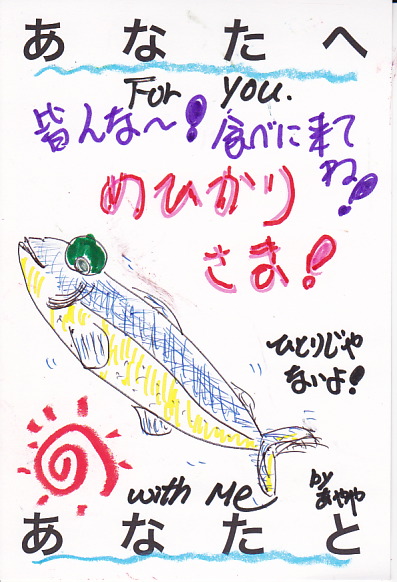 あなたへ
For you.
皆んな〜！食べに来て
ね！
めひかり
さま！
ひとりじゃ
ないよ！
with Me
by
あやや
あなたと